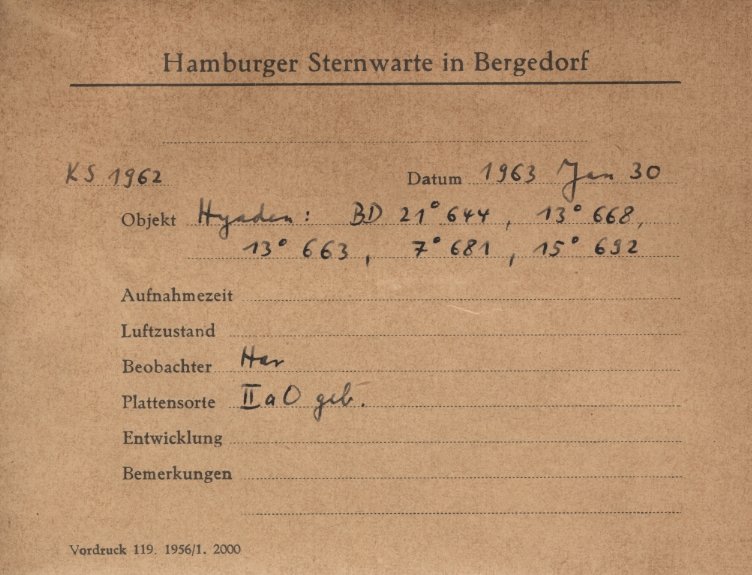 Hamburger Sternwarte in Bergedorf
KS 1962 Datum 1963 Jan 30
Objekt Hyaden: BD 21° 644, 13° 668,
13° 663, 7° 681, 15° 692
Aufnahmezeit
Luftzustand
Beobachter Har
Plattensorte II a O geb.
Entwicklung
Bemerkungen
Vordruck 119. 1956/1. 2000